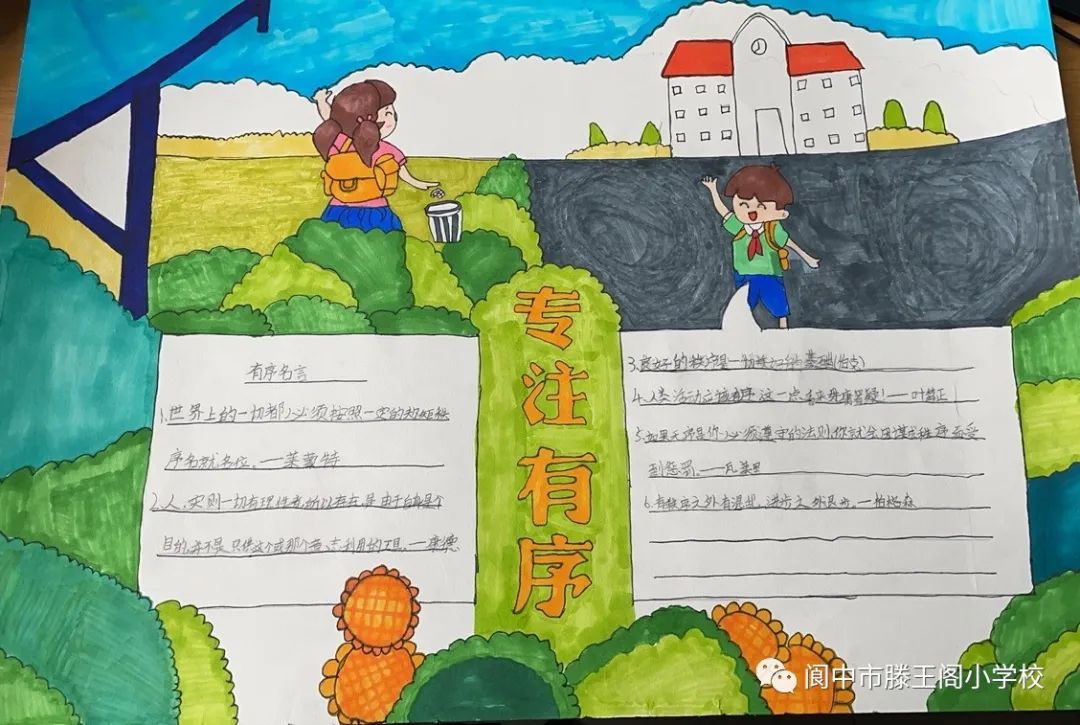 专注有序
有序名言
1.世界上的一切都必须按照一定的规矩秩
序名就名位。——莱蒙特
2.人,实则一切有理性者,所以存在,是由于自身是个
目的,并不是只供这个或那个意志利用的工具。——康德
3.良好的秩序是一切美好的基础(伯克)
4.人类活动应该有序,这一点看来毋庸置疑!——叶
5.如果无序是你必须遵守的法则,你就会因谋求秩序而受
到惩罚。——瓦莱里
6.有秩序之外有混乱,进步之外是——柏格森
阆中市滕王阁小学校